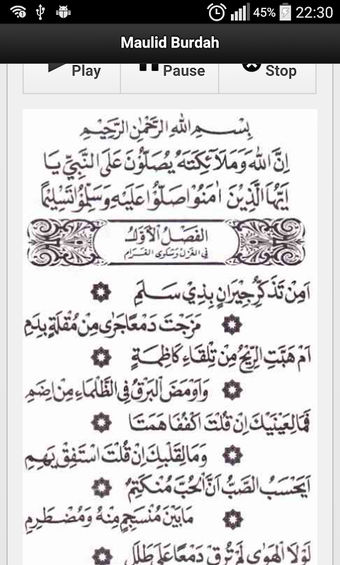 45% 22:30
Maulid Burdah
Play Pause Stop
بِسْمِ اللهِ الرَّحْمٰنِ الرَّحِيْمِ
اِنَّ اللهَ وَمَلَآئِكَتَهُ يُصَلُّوْنَ عَلَى النَّبِيِّ يَا
اَيُّهَا الَّذِيْنَ اٰمَنُوْا صَلُّوْا عَلَيْهِ وَسَلِّمُوْا تَسْلِيْمًا
الفَصْلُ الْأَوَّلُ
فِي الغَزَلِ وَشَكْوَى الغَرَامِ
اَمِنْ تَذَكُّرِ جِيْرَانٍ بِذِيْ سَلَمِ
مَزَجْتَ دَمْعًا جَرٰى مِنْ مُقْلَةٍ بِدَمِ
اَمْ هَبَّتِ الرِّيْحُ مِنْ تِلْقَاءِ كَاظِمَةٍ
وَاَوْمَضَ الْبَرْقُ فِى الظَّلْمَاءِ مِنْ اِضَمِ
فَمَا لِعَيْنَيْكَ اِنْ قُلْتَ اكْفُفَا هَمَتَا
وَمَا لِقَلْبِكَ اِنْ قُلْتَ اسْتَفِقْ يَهِمِ
اَيَحْسَبُ الصَّبُّ اَنَّ الْحُبَّ مُنْكَتِمٌ
مَا بَيْنَ مُنْسَجِمٍ مِنْهُ وَمُضْطَرِمِ
لَوْلَا الْهَوٰى لَمْ تُرِقْ دَمْعًا عَلٰى طَلَلٍ